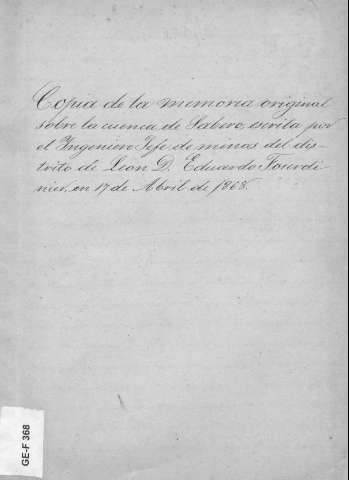 Copia de la memoria original
sobre la cuenca de Sabero, escrita por
el Ingeniero Jefe de minas del dis-
trito de Leon D. Eduardo Fourdi-
nier, en 17 de Abril de 1868.
GE-F 368